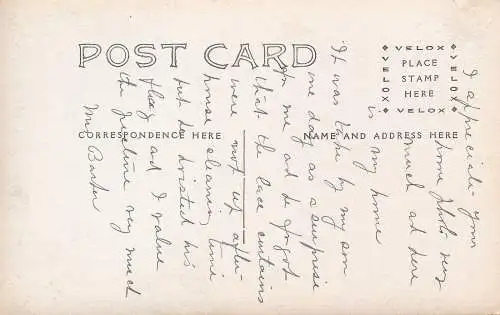 POST CARD
VELOX
VELOX
VELOX
VELOX
PLACE
STAMP
HERE
CORRESPONDENCE HERE
NAME AND ADDRESS HERE
I appreciate your
home photo very
much and here
is my home
It was take by my son
one day as a surprise
for me ad he forgot
that the lace curtains
were not up after
house cleaning time
but he hoisted his
flag and I value
the picture very much
Mr Barker